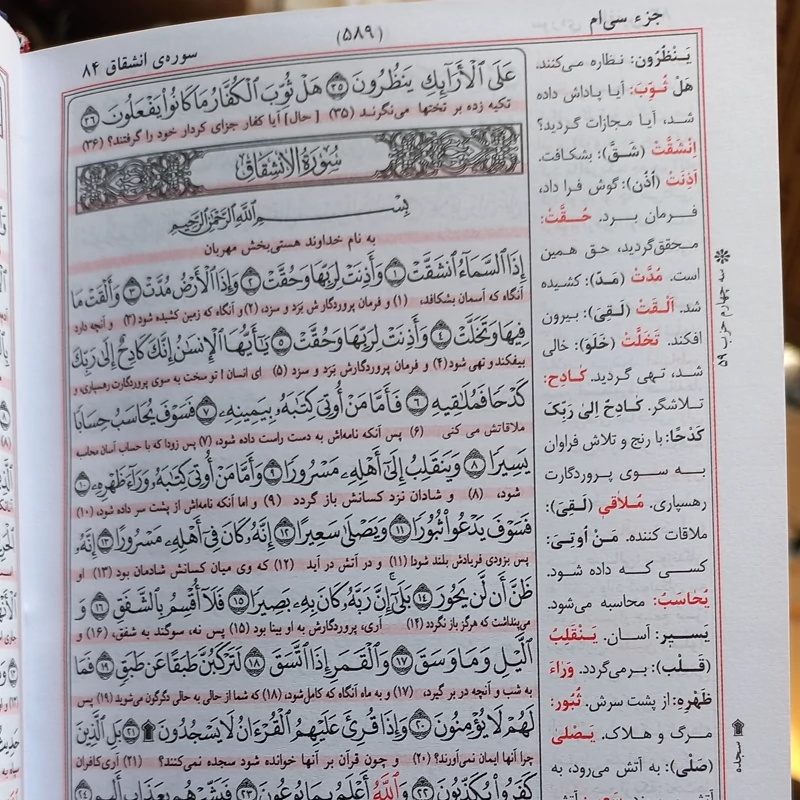 جزء سی‌ام
(۵۸۹)
سوره‌ی انشقاق ۸۴
عَلَى ٱلْأَرَآئِكِ يَنظُرُونَ ۳۵ هَلْ ثُوِّبَ ٱلْكُفَّارُ مَا كَانُوا۟ يَفْعَلُونَ ۳۶
تکیه زده بر تختها می‌نگرند (۳۵) [حال] آیا کفار جزای کردار خود را گرفتند؟ (۳۶)
سُورَةُ الْاِنْشِقَاقِ
بِسْمِ ٱللَّهِ ٱلرَّحْمَٰنِ ٱلرَّحِيمِ
به نام خداوند هستی‌بخش مهربان
إِذَا ٱلسَّمَآءُ ٱنشَقَّتْ ۱ وَأَذِنَتْ لِرَبِّهَا وَحُقَّتْ ۲ وَإِذَا ٱلْأَرْضُ مُدَّتْ ۳ وَأَلْقَتْ مَا
آنگاه که آسمان بشکافد، (۱) و فرمان پروردگارش بَرَد و سزد، (۲) و آنگاه که زمین کشیده شود (۳) و آنچه دارد
فِيهَا وَتَخَلَّتْ ۴ وَأَذِنَتْ لِرَبِّهَا وَحُقَّتْ ۵ يَٰٓأَيُّهَا ٱلْإِنسَٰنُ إِنَّكَ كَادِحٌ إِلَىٰ رَبِّكَ
بیفکند و تهی شود (۴) و فرمان پروردگارش بَرَد و سزد (۵) ای انسان! تو سخت به سوی پروردگارت رهسپاری، و
كَدْحًا فَمُلَٰقِيهِ ۶ فَأَمَّا مَنْ أُوتِىَ كِتَٰبَهُۥ بِيَمِينِهِۦ ۷ فَسَوْفَ يُحَاسَبُ حِسَابًا
ملاقاتش می کنی (۶) پس آنکه نامه‌اش به دست راست داده شود، (۷) پس زودا که با حساب آسان محاسبه
يَسِيرًا ۸ وَيَنقَلِبُ إِلَىٰٓ أَهْلِهِۦ مَسْرُورًا ۹ وَأَمَّا مَنْ أُوتِىَ كِتَٰبَهُۥ وَرَآءَ ظَهْرِهِۦ ۱۰
شود، (۸) و شادان نزد کسانش باز گردد (۹) و اما آنکه نامه‌اش از پشت سر داده شود، (۱۰)
فَسَوْفَ يَدْعُوا۟ ثُبُورًا ۱۱ وَيَصْلَىٰ سَعِيرًا ۱۲ إِنَّهُۥ كَانَ فِىٓ أَهْلِهِۦ مَسْرُورًا ۱۳ إِنَّهُۥ
پس بزودی فریادش بلند شود! (۱۱) و در آتش در آید (۱۲) که وی میان کسانش شادمان بود (۱۳) او
ظَنَّ أَن لَّن يَحُورَ ۱۴ بَلَىٰٓ إِنَّ رَبَّهُۥ كَانَ بِهِۦ بَصِيرًا ۱۵ فَلَآ أُقْسِمُ بِٱلشَّفَقِ ۱۶ وَ
می‌پنداشت که هرگز باز نگردد (۱۴) آری، پروردگارش به او بینا بود (۱۵) پس نه، سوگند به شفق، (۱۶) و
ٱلَّيْلِ وَمَا وَسَقَ ۱۷ وَٱلْقَمَرِ إِذَا ٱتَّسَقَ ۱۸ لَتَرْكَبُنَّ طَبَقًا عَن طَبَقٍ ۱۹ فَمَا
به شب و آنچه در بر گیرد، (۱۷) و به ماه آنگاه که کامل شود، (۱۸) که شما از حالی به حالی دگرگون می‌شوید (۱۹) پس
لَهُمْ لَا يُؤْمِنُونَ ۲۰ وَإِذَا قُرِئَ عَلَيْهِمُ ٱلْقُرْءَانُ لَا يَسْجُدُونَ ۩ ۲۱ بَلِ ٱلَّذِينَ
چرا آنها ایمان نمی‌آورند؟ (۲۰) و چون قرآن بر آنها خوانده شود سجده نمی‌کنند؟ (۲۱) آری کافران
كَفَرُوا۟ يُكَذِّبُونَ ۲۲ وَٱللَّهُ أَعْلَمُ بِمَا يُوعُونَ ۲۳ فَبَشِّرْهُم بِعَذَابٍ أَلِيمٍ ۲۴
يَنْظُرُونَ: نظاره می‌کنند.
هَلْ ثُوِّبَ: آیا پاداش داده
شد، آیا مجازات گردید؟
اِنْشَقَّتْ (شَقّ): بشکافت.
اَذِنَتْ (اُذُن): گوش فرا داد،
فرمان برد. حُقَّتْ:
محقق گردید، حق همین
است. مُدَّتْ (مَدّ): کشیده
شد. اَلْقَتْ (لَقِیَ): بیرون
افکند. تَخَلَّتْ (خَلَو): خالی
شد، تهی گردید. کادِح:
تلاشگر. کادِحٌ اِلی رَبِّکَ
کَدْحًا: با رنج و تلاش فراوان
به سوی پروردگارت
رهسپاری. مُلاقِی (لَقِیَ):
ملاقات کننده. مَنْ اُوتِیَ:
کسی که داده شود.
یُحاسَبُ: محاسبه می‌شود.
یَسیر: آسان. یَنْقَلِبُ
(قَلْب): برمی‌گردد. وَراءَ
ظَهْرِهِ: از پشت سرش. ثُبُور:
مرگ و هلاک. یَصْلی
(صَلْی): به آتش می‌رود، به
※ سه چهارم حزب ۵۹
۩ سجده